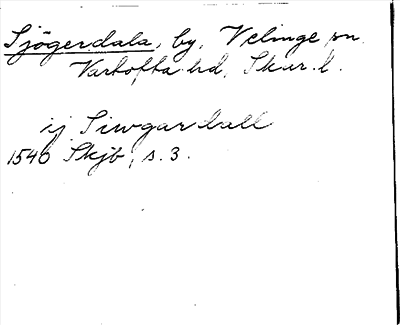 Sjögerdala, by, Velinge sn,
Vartofta hd, Skar. l.
ij Siwgardall
1540 Skjb, s. 3.